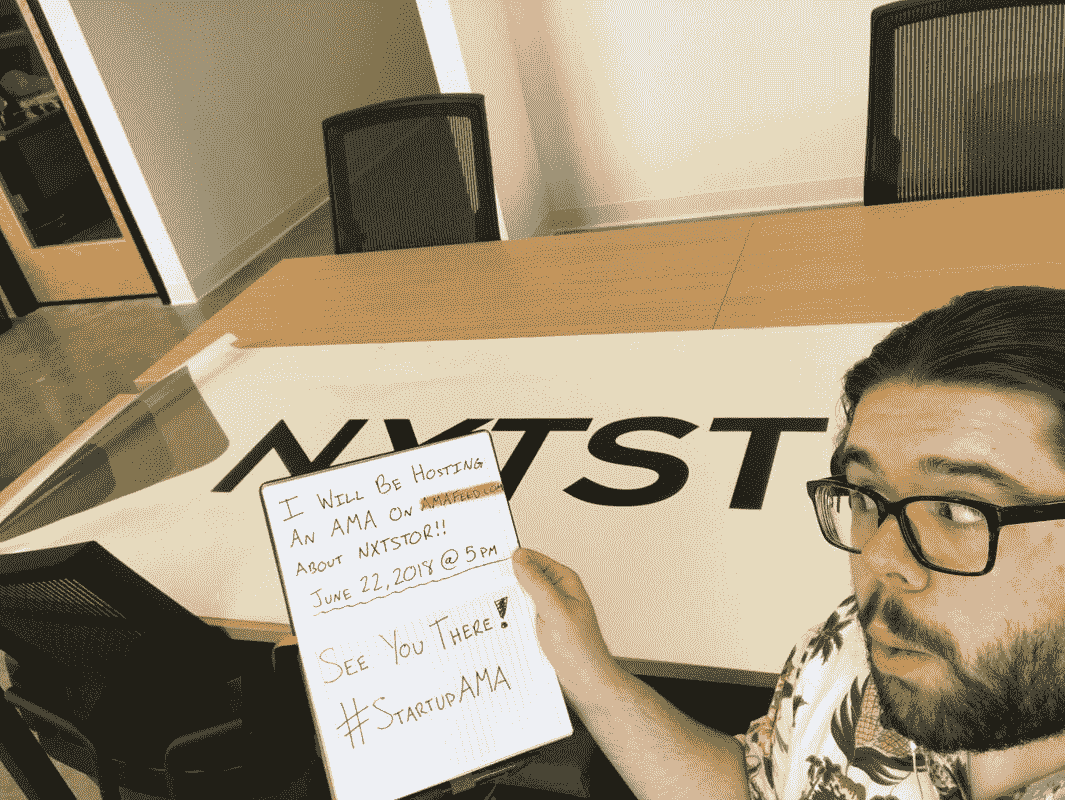 NXTST
I WILL BE HOSTING
AN AMA ON AMAFEED.COM
ABOUT NXTSTOR!!
JUNE 22, 2018 @ 5 PM
SEE YOU THERE!
#STARTUPAMA